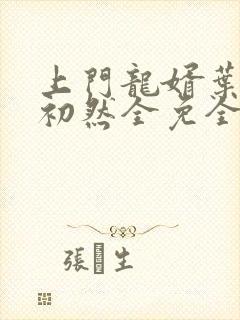 上門龍婿葉
初然全免全
張生